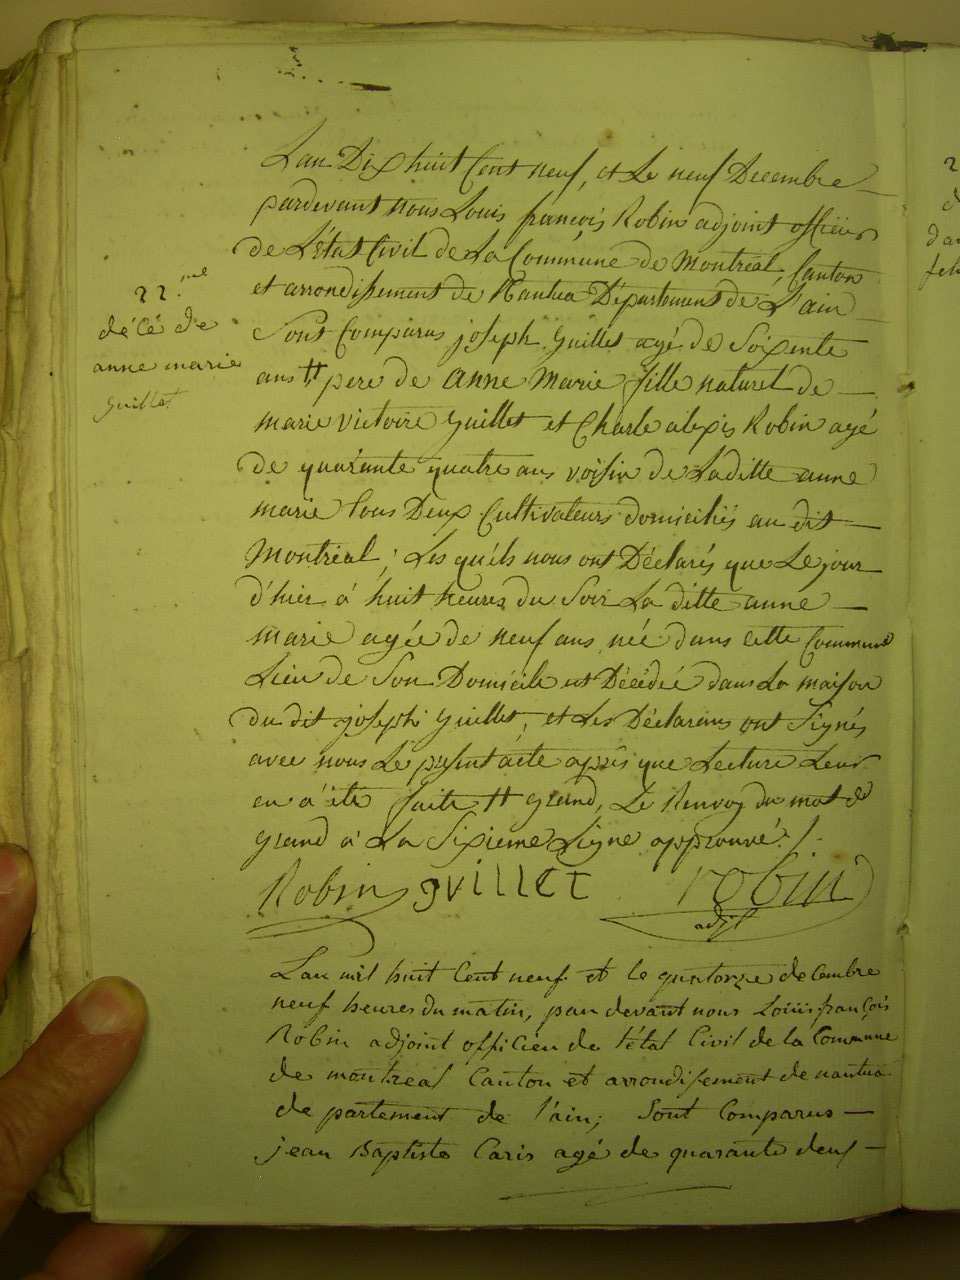 22.me
décé de
anne marie
guillet
L'an Dix huit Cent neuf, et Le neuf Decembre
pardevant nous Louis françois Robin adjoint officier
de L'état Civil de La Commune de Montréal, Canton
et arrondissement de Nantua Département de L'ain
Sont Comparus joseph guillet agé de Soixente
ans # pere de anne Marie fille naturel de
marie victoire guillet et Charle alexis Robin agé
de quarante quatre ans voisin de Laditte anne
marie tous Deux Cultivateurs domiciliés au dit
Montréal, Les quéls nous ont Déclarés que Le jour
d'hier à huit heures du Soir La ditte anne
marie agée de neuf ans née dans cette Commune
Lieu de Son Domicile est Décédée dans La maison
du dit joseph guillet, et Les Déclarans ont Signés
avec nous Le présent acte après que Lecture Leur
en a été faite # grand, Le Renvoy du mot de
grand à La Sixieme Ligne approuvé ./.
Robin guillet robin
adjt
L'an mil huit Cent neuf et le quatorze decembre
neuf heures du matin, par devant nous Loüis françois
Robin adjoint officier de l'état Civil de la Commune
de montréal Canton et arrondissement de nantua
departement de l'ain; Sont Comparus
jean Baptiste Caris agé de quarante deux